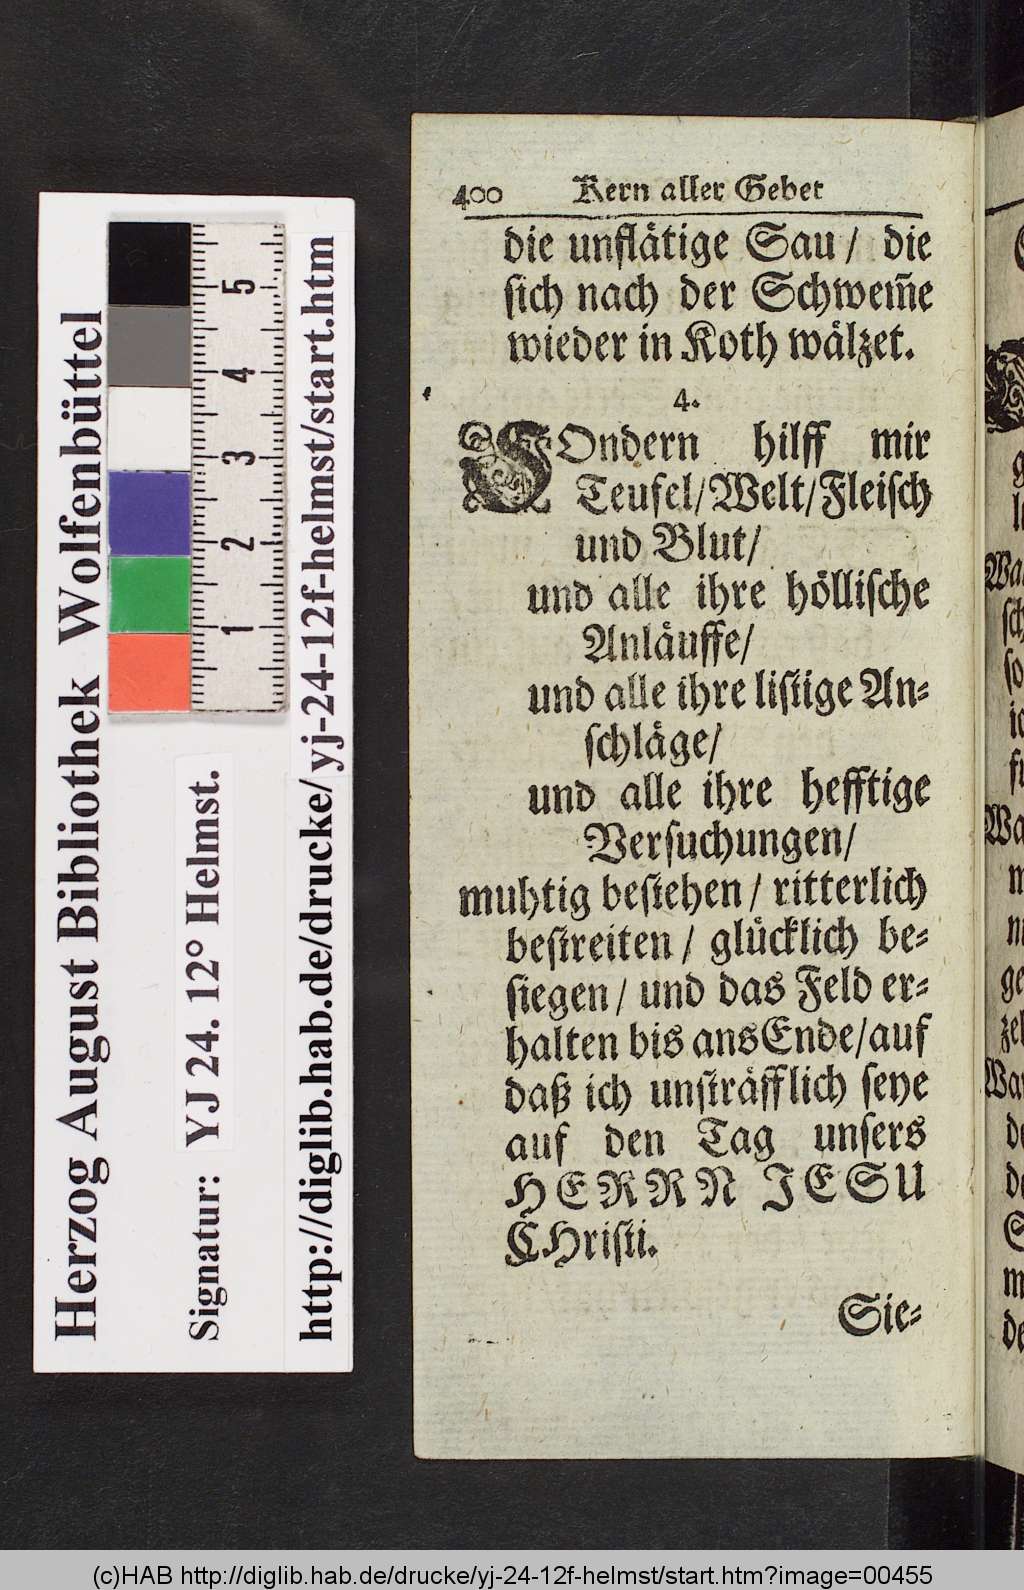 400 Kern aller Gebet
die unflätige Sau / die
sich nach der Schwem̃e
wieder in Koth wälzet.
4.
SOndern hilff mir
Teufel/Welt/Fleisch
und Blut/
und alle ihre höllische
Anläuffe/
und alle ihre listige An=
schläge/
und alle ihre hefftige
Versuchungen/
muhtig bestehen / ritterlich
bestreiten / glücklich be=
siegen / und das Feld er=
halten bis ans Ende/auf
daß ich unsträfflich seye
auf den Tag unsers
HERRN JESU
CHristi.
Sie=
Herzog August Bibliothek Wolfenbüttel
Signatur: YJ 24. 12° Helmst.
http://diglib.hab.de/drucke/yj-24-12f-helmst/start.htm
5
4
3
2
1
(c)HAB http://diglib.hab.de/drucke/yj-24-12f-helmst/start.htm?image=00455